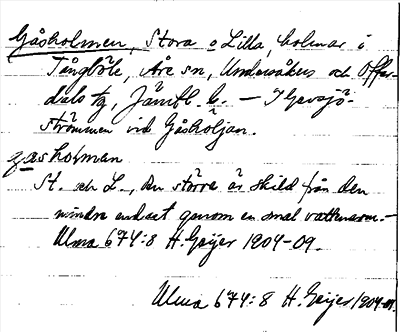 Gåsholmen, Stora o Lilla, holmar i
Tångböle, Åre sn, Undersåkers och Offer-
dals tg, Jämtl. l. — I Gevsjö-
strömmen vid Gåshöljan.
gåsholman
St. och L., den större är skild från den
mindre endast genom en smal vattenarm. —
Ulma 674:8 H. Geijer 1904-09.
Ulma 674:8 H. Geijer 1904-09.